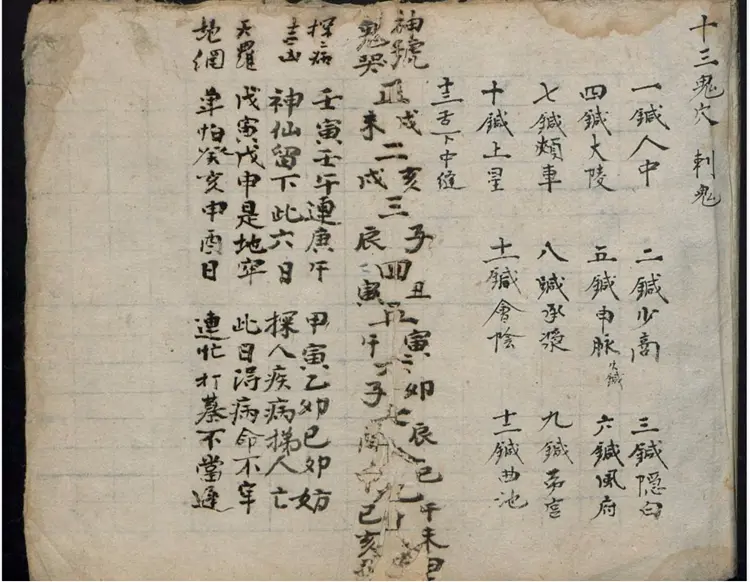 十三鬼穴 刺鬼
一鍼人中 二鍼少商 三鍼隠白
四鍼大陵 五鍼申脉火鍼 六鍼風府
七鍼頰車 八鍼承漿 九鍼劳宫
十鍼上星 十一鍼會陰 十二鍼曲池
十三舌下中縫
神號 戌 亥 子 丑 寅 卯 辰 巳 午 未 申
正 二 三 四 五 六 七 八 九 十
鬼哭 未 戌 辰 寅 午 子 巳 亥
探病 壬寅壬午連庚午 甲寅乙卯己卯妨
神仙留下此六日 探人疾病梯人亡
天羅 戊寅戊申是地牢 此日得病命不牢
地網 单怕癸亥申酉日 連忙打墓不當遲